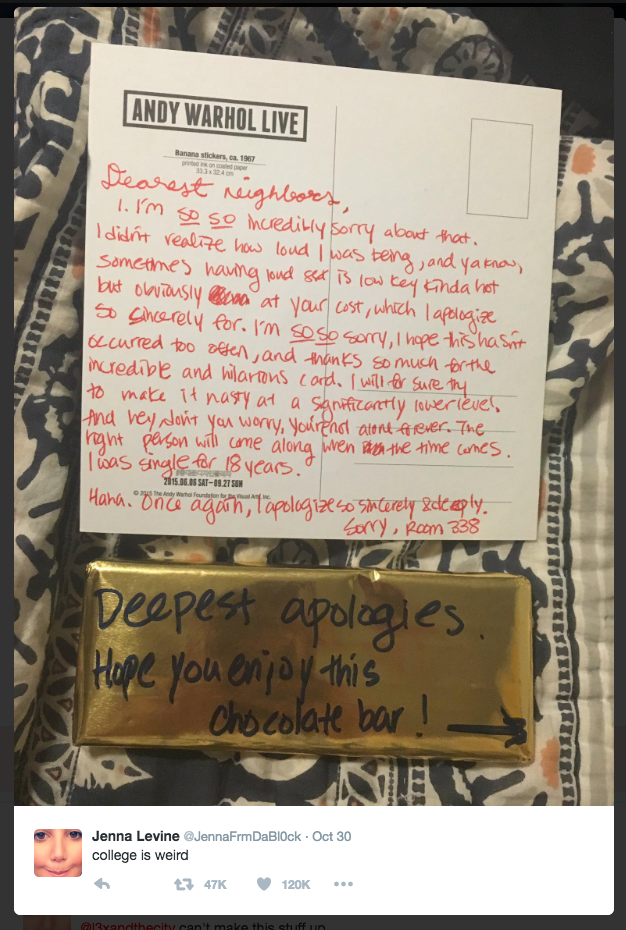 ANDY WARHOL LIVE
Banana stickers, ca. 1967
printed ink on coated paper
Dearest neighbors,
1. I'm so so incredibly sorry about that.
I didn't realize how loud I was being, and ya know,
sometimes having loud sex is low key kinda hot
but obviously at your cost, which I apologize
so sincerely for. I'm so so sorry, I hope this hasn't
occurred too often, and thanks so much for the
incredible and hilarious card. I will for sure try
to make it nasty at a significantly lower level.
And hey don't you worry, you're not alone forever. The
right person will come along when the time comes.
I was single for 18 years.
2015.06.06 SAT–09.27 SUN
© 2015 The Andy Warhol Foundation for the Visual Arts, Inc.
Haha. Once again, I apologize so sincerely & deeply.
Sorry, Room 338
Deepest apologies.
Hope you enjoy this
chocolate bar!
Jenna Levine @JennaFrmDaBl0ck · Oct 30
college is weird
47K 120K
@l3xandthecity can't make this stuff up